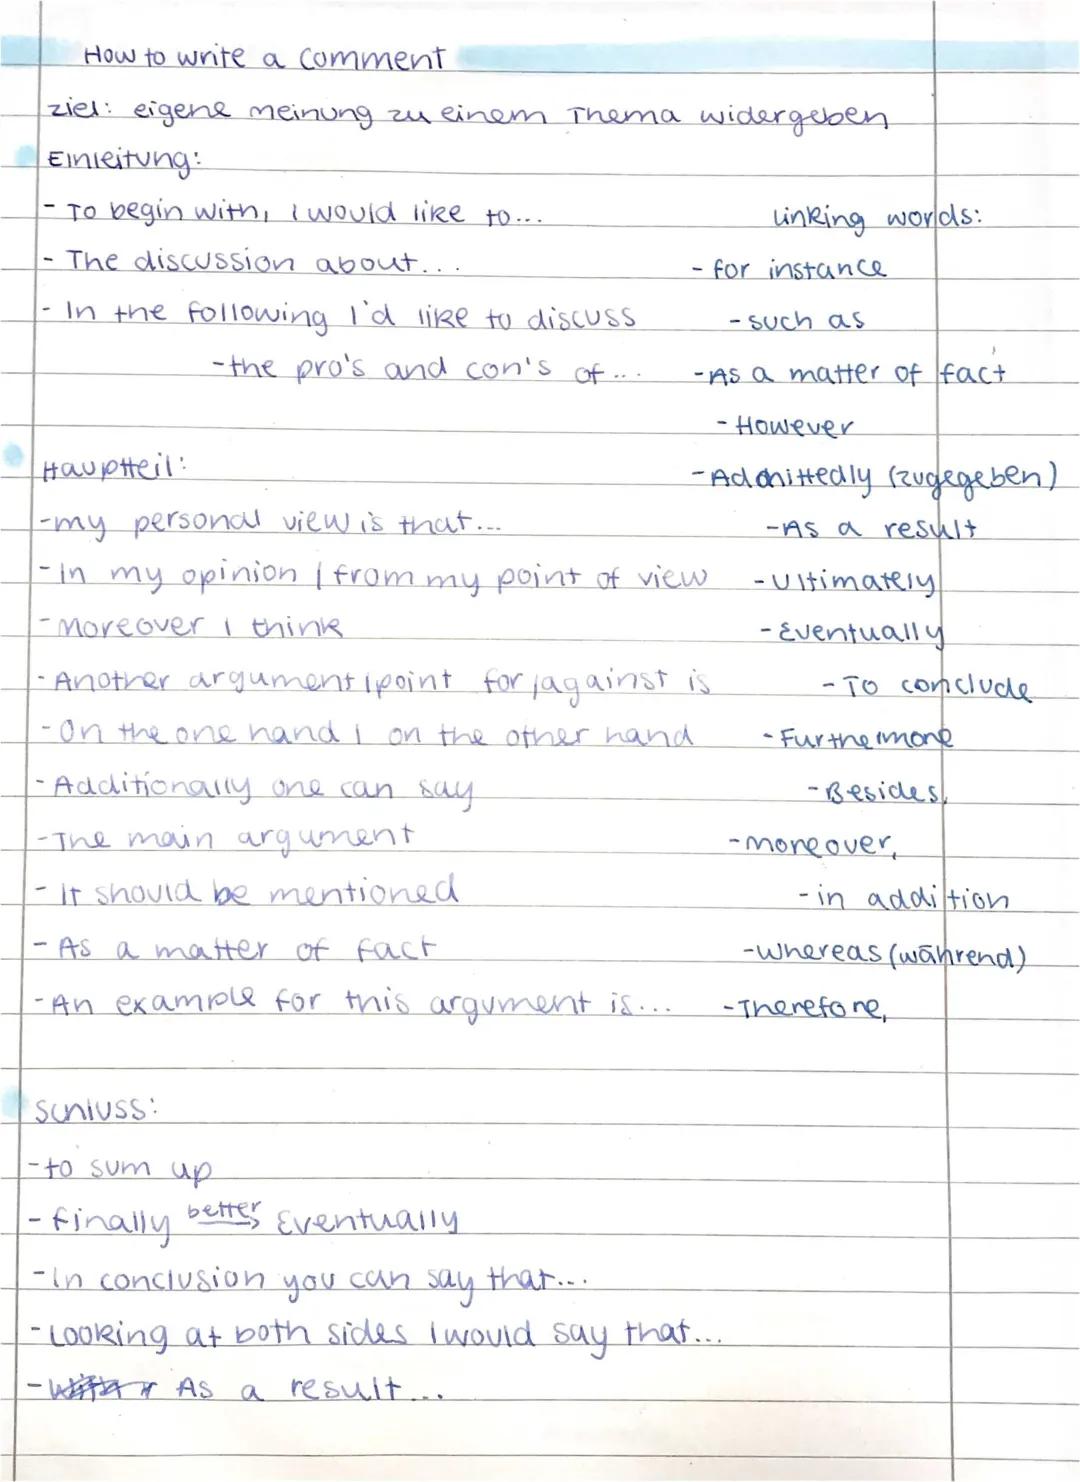 How to write a comment
ziel: eigene meinung zu einem Thema widergeben
Einleitung:
- To begin with, I would like to...
linking words:
- The discussion about...
- for instance
- In the following I'd like to discuss
- such as
- the pro's and con's of...
- As a matter of fact
- However
Hauptteil:
- Admittedly (zugegeben)
- my personal view is that...
- As a result
- In my opinion / from my point of view
- Ultimately
- moreover I think
- Eventually
- Another argument/point for/against is
- To conclude
- On the one hand / on the other hand
- Furthermore
- Additionally one can say
- Besides,
- The main argument
- moreover,
- It should be mentioned
- in addition
- As a matter of fact
- whereas (während)
- An example for this argument is...
- Therefore,
Schluss:
- to sum up
- finally better Eventually
- In conclusion you can say that...
- Looking at both sides I would say that...
- As a result...